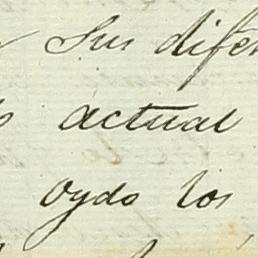 Sus difer
actual
oydo los